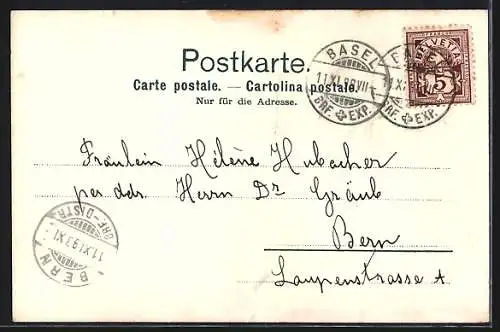 Postkarte.
Carte postale. — Cartolina postale.
Nur für die Adresse.
BASEL
11.XI.99.VII-
BRF. EXP.
HELVETIA
5
Fräulein Hélène Hubacher
per adr. Herrn Dr Gräub
Bern
Laupenstrasse
BRF-DISTR.
11.XI.99.XI
BERN